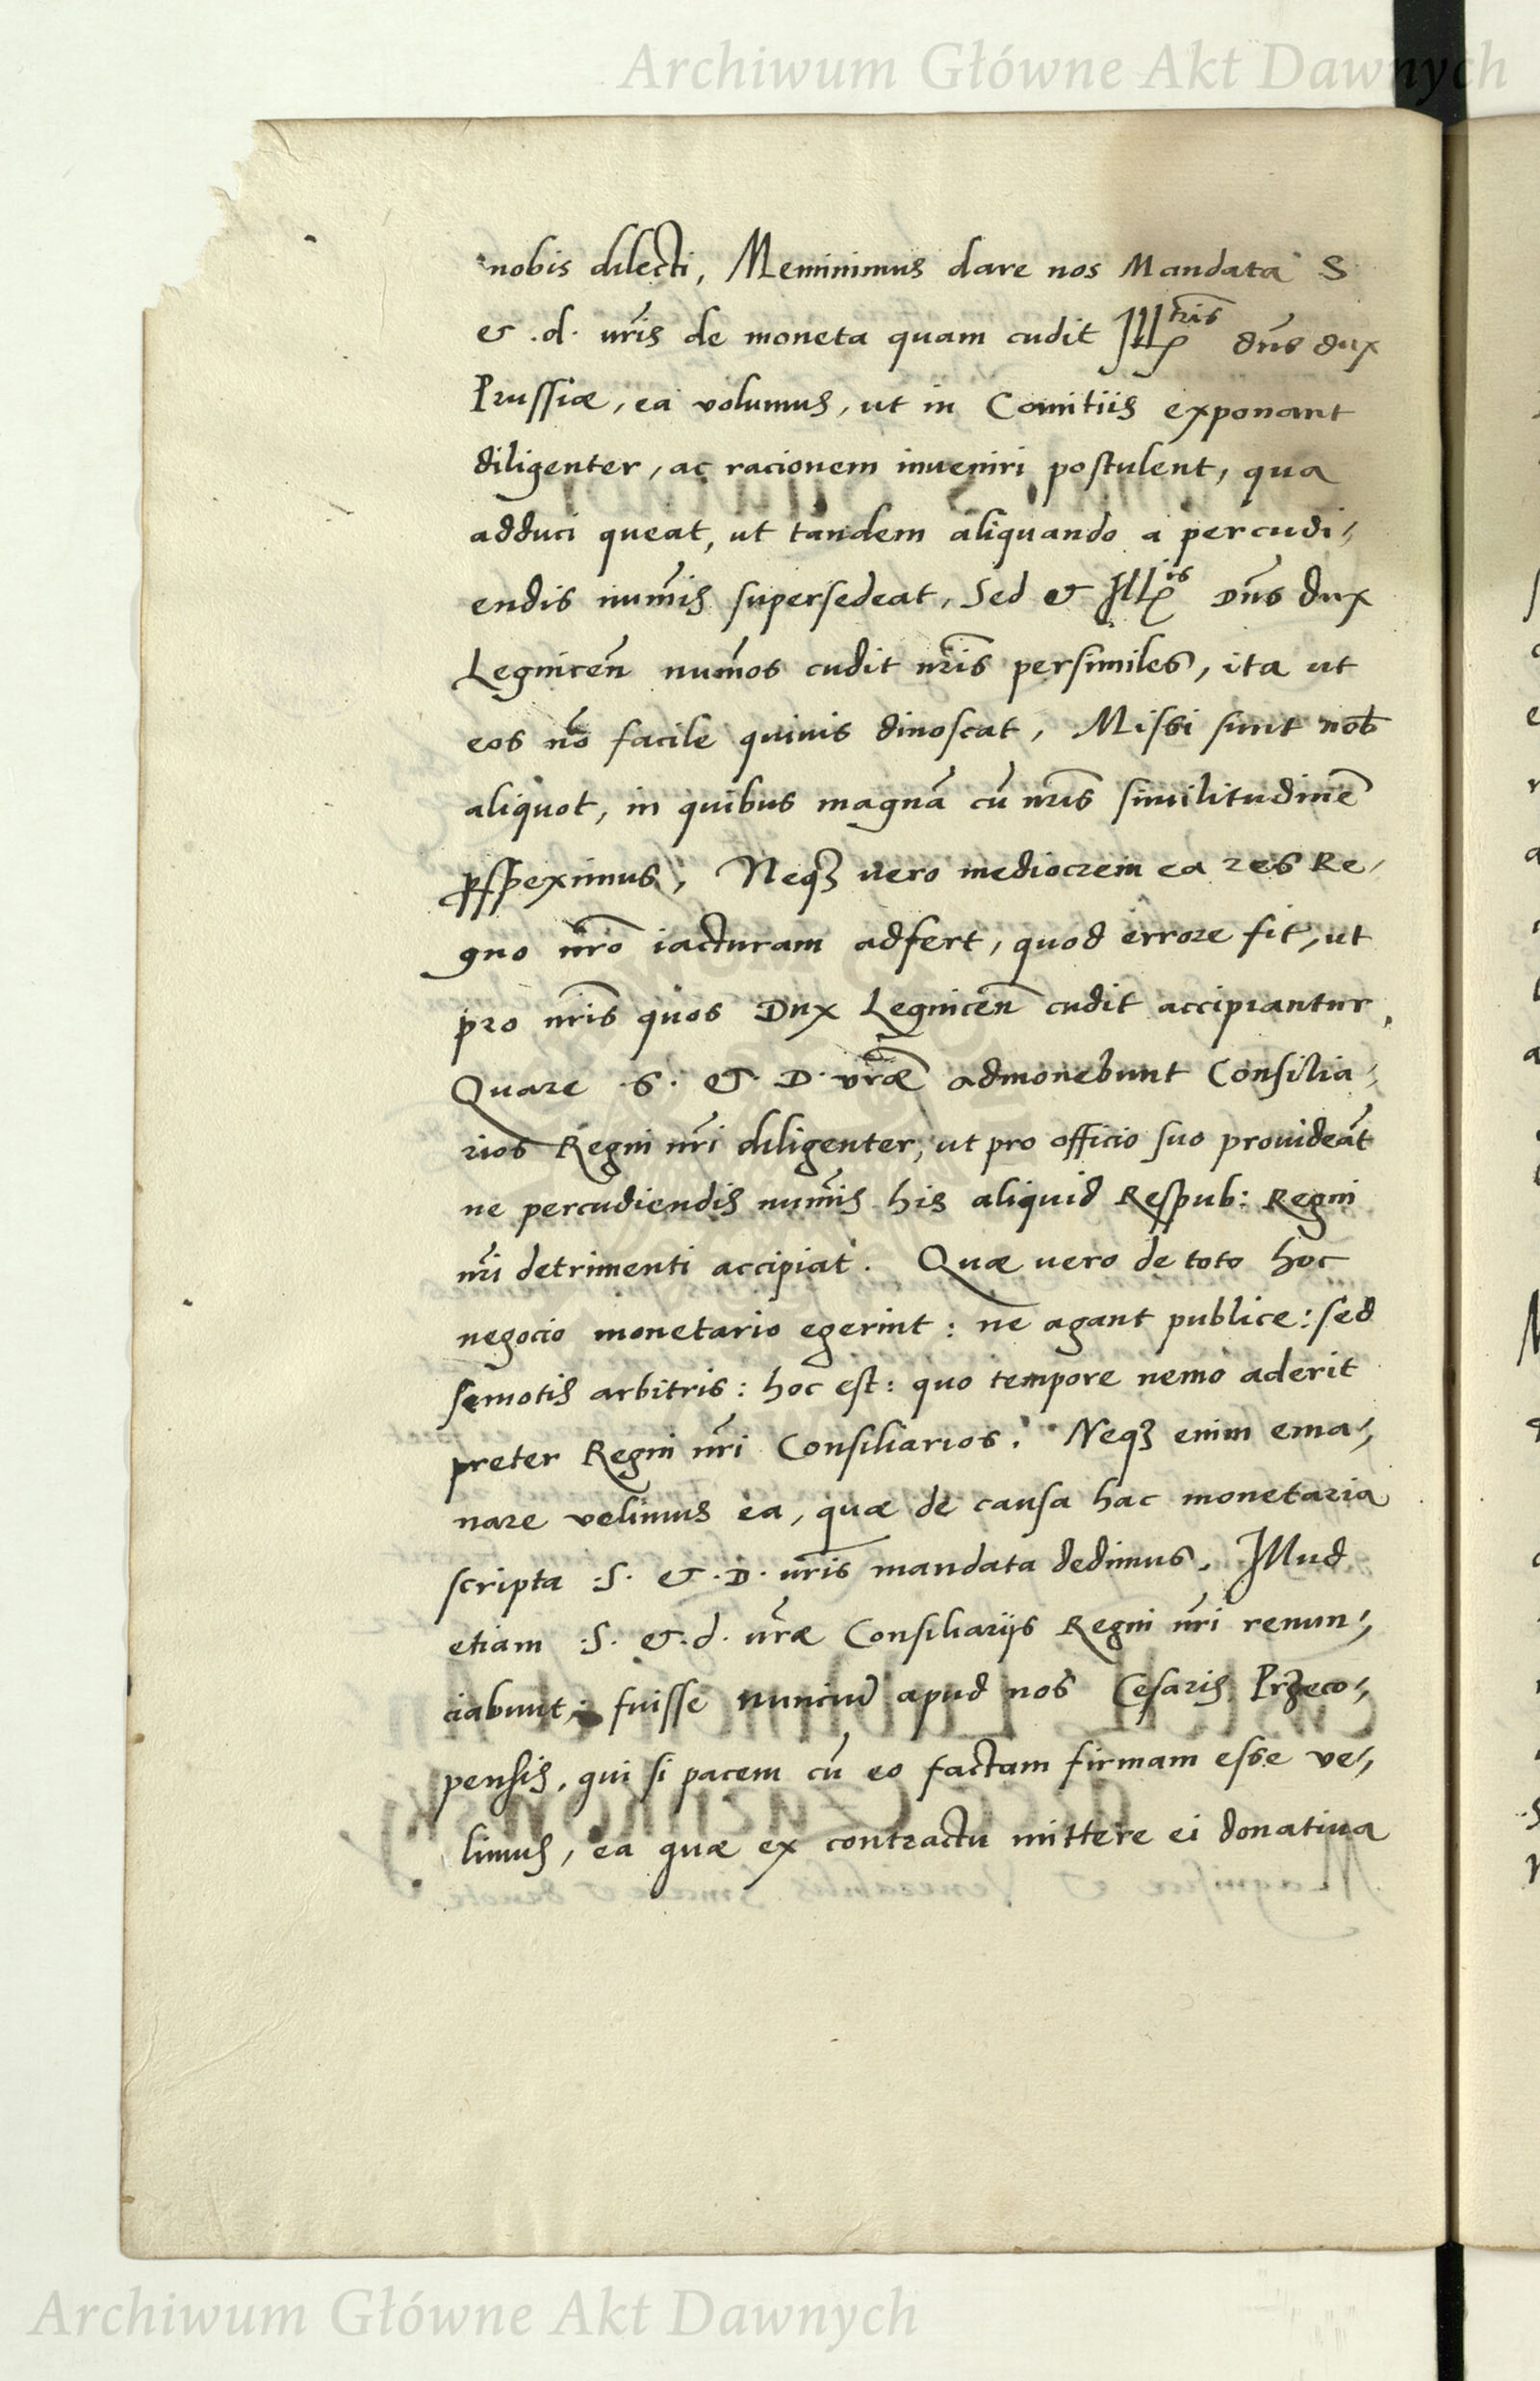 Archiwum Główne Akt Dawnych
nobis dilecti, Meminimus dare nos Mandata S
& .d. vr̃is de moneta quam cudit Ill^tris dñs dux
Prussiæ, ea volumus, ut in Comitiis exponant
diligenter, ac racionem inveniri postulent, qua
adduci queat, ut tandem aliquando a percudi-
endis num̃is supersedeat, Sed & Ill^is Dñs dux
Legnicen̄ num̃os cudit nr̃is persimiles, ita ut
eos nõ facile quivis dinoscat, Missi sunt nob
aliquot, in quibus magnã cũ nr̃is similitudinẽ
ꝑspeximus, Neqꝫ vero mediocrem ea res Re-
gno nr̃o iacturam adfert, quod errore fit, ut
pro nr̃is quos Dux Legnicen̄ cudit accipiantur,
Quare .S. &. D. vr̃æ admonebunt Consilia-
rios Regni nr̃i diligenter, ut pro officio suo provideãt
ne percudiendis num̃is his aliquid Respub: Regni
nr̃i detrimenti accipiat. Quæ vero de toto hoc
negocio monetario egerint: ne agant publice: sed
semotis arbitris: hoc est: quo tempore nemo aderit
preter Regni nr̃i Consiliarios. Neqꝫ enim ema-
nare velimus ea, quæ de causa hac monetaria
scripta .S. &. D. vr̃is mandata dedimus. Illud
etiam .S. &. d. vr̃æ Consiliarijs Regni nr̃i renun-
ciabunt, fuisse nunciũ apud nos Cesaris Przeco-
pensis, qui si pacem cũ eo factam firmam esse ve-
limus, ea quæ ex contractu mittere ei donativa
Archiwum Główne Akt Dawnych